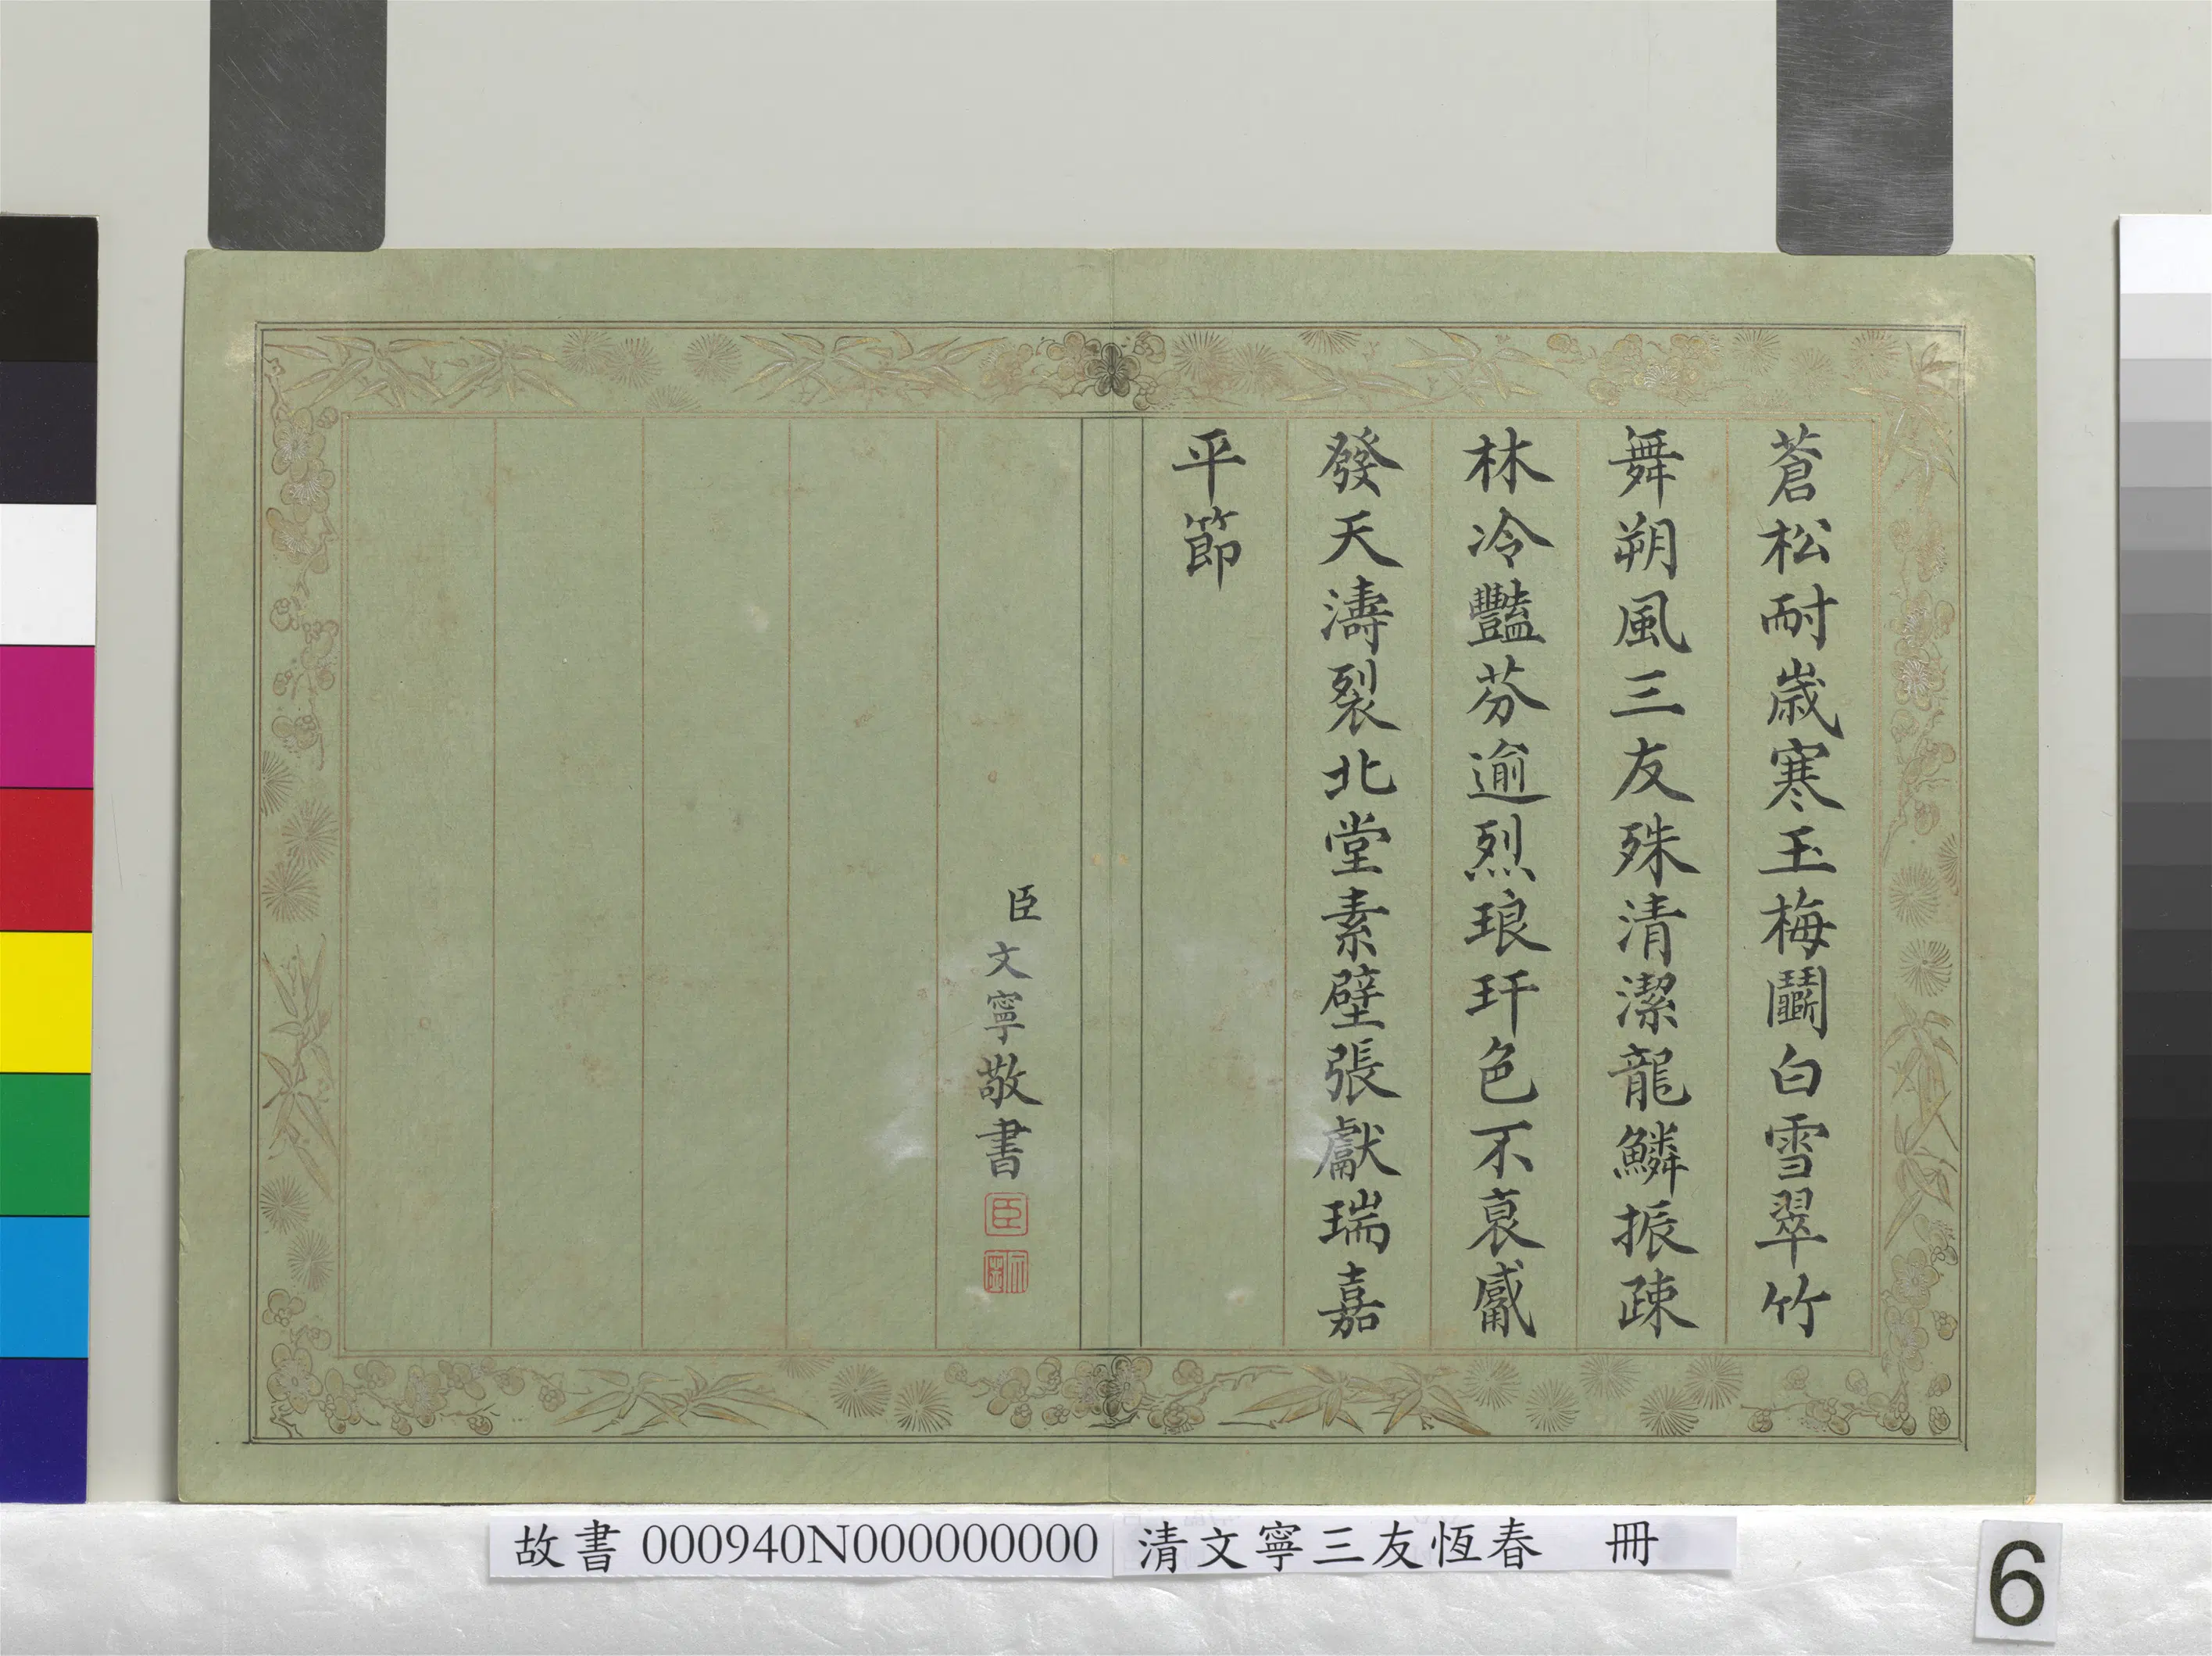 蒼松耐歲寒玉梅鬭白雪翠竹
舞朔風三友殊清潔龍鱗振疎
林冷豔芬逾烈琅玕色不衰鬳
發天濤裂北堂素壁張獻瑞嘉
平節
臣文寧敬書
臣
故書 000940N000000000 清文寧三友恆春 冊
6